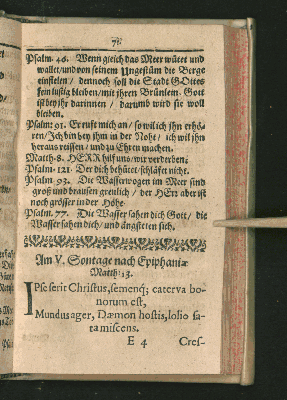 71.
Psalm. 46. Wenn gleich das Meer wütet und
wallet/und von seinem Ungestüm die Berge
einfielen / dennoch soll die Stadt GOttes
fein lustig bleiben/mit jhren Brünlein. Gott
ist bey jhr darinnen / darumb wird sie woll
bleiben.
Psalm: 91. Er rufft mich an / so wil ich jhn erhö-
ren/Ich bin bey jhm in der Noht / ich wil jhn
heraus reissen / und zu Ehren machen.
Matth. 8. HERR hilf uns/ wir verderben:
Psalm. 121. Der dich behütet/schläfet nicht.
Psalm. 93. Die Wasserwogen im Meer sind
groß und brausen greulich / der HErr aber ist
noch grösser in der Höhe.
Psalm. 77. Die Wasser sahen dich Gott / die
Wasser sahen dich/ und ängsteten sich.
Am V. Sontage nach Epiphaniæ
Matth: 13.
IPse serit Christus, semenq; caterva bo-
norum est,
Mundus ager, Dæmon hostis, lolio sa-
ta miscens.
E 4 Cres-